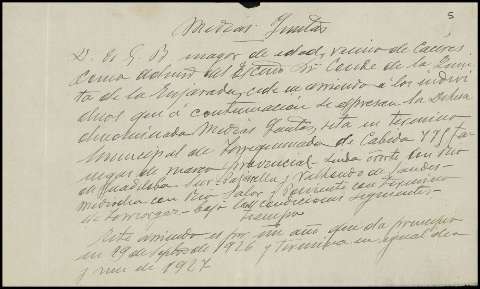 5
Medias Juntas
D. A. G. B. mayor de edad, vecino de Caceres
como admor del Excmo Sr Conde de la Quin
ta de la Enjarada, cede en arriendo á los indivi
duos que á continuacion se expresan la Dehesa
denominada Medias Juntas, sita en termino
Municipal de Torrequemada de Cabida 775 fa
negas de marco provincial. Linda Norte con Rio
Sur y
Mediodia con Rio Salor y Poniente con termino
de Torreorgaz bajo las condiciones siguientes
tiempo
Este arriendo es por un año que da principio
en 29 de septbre de 1926 y termina en igual dia
y mes de 1927